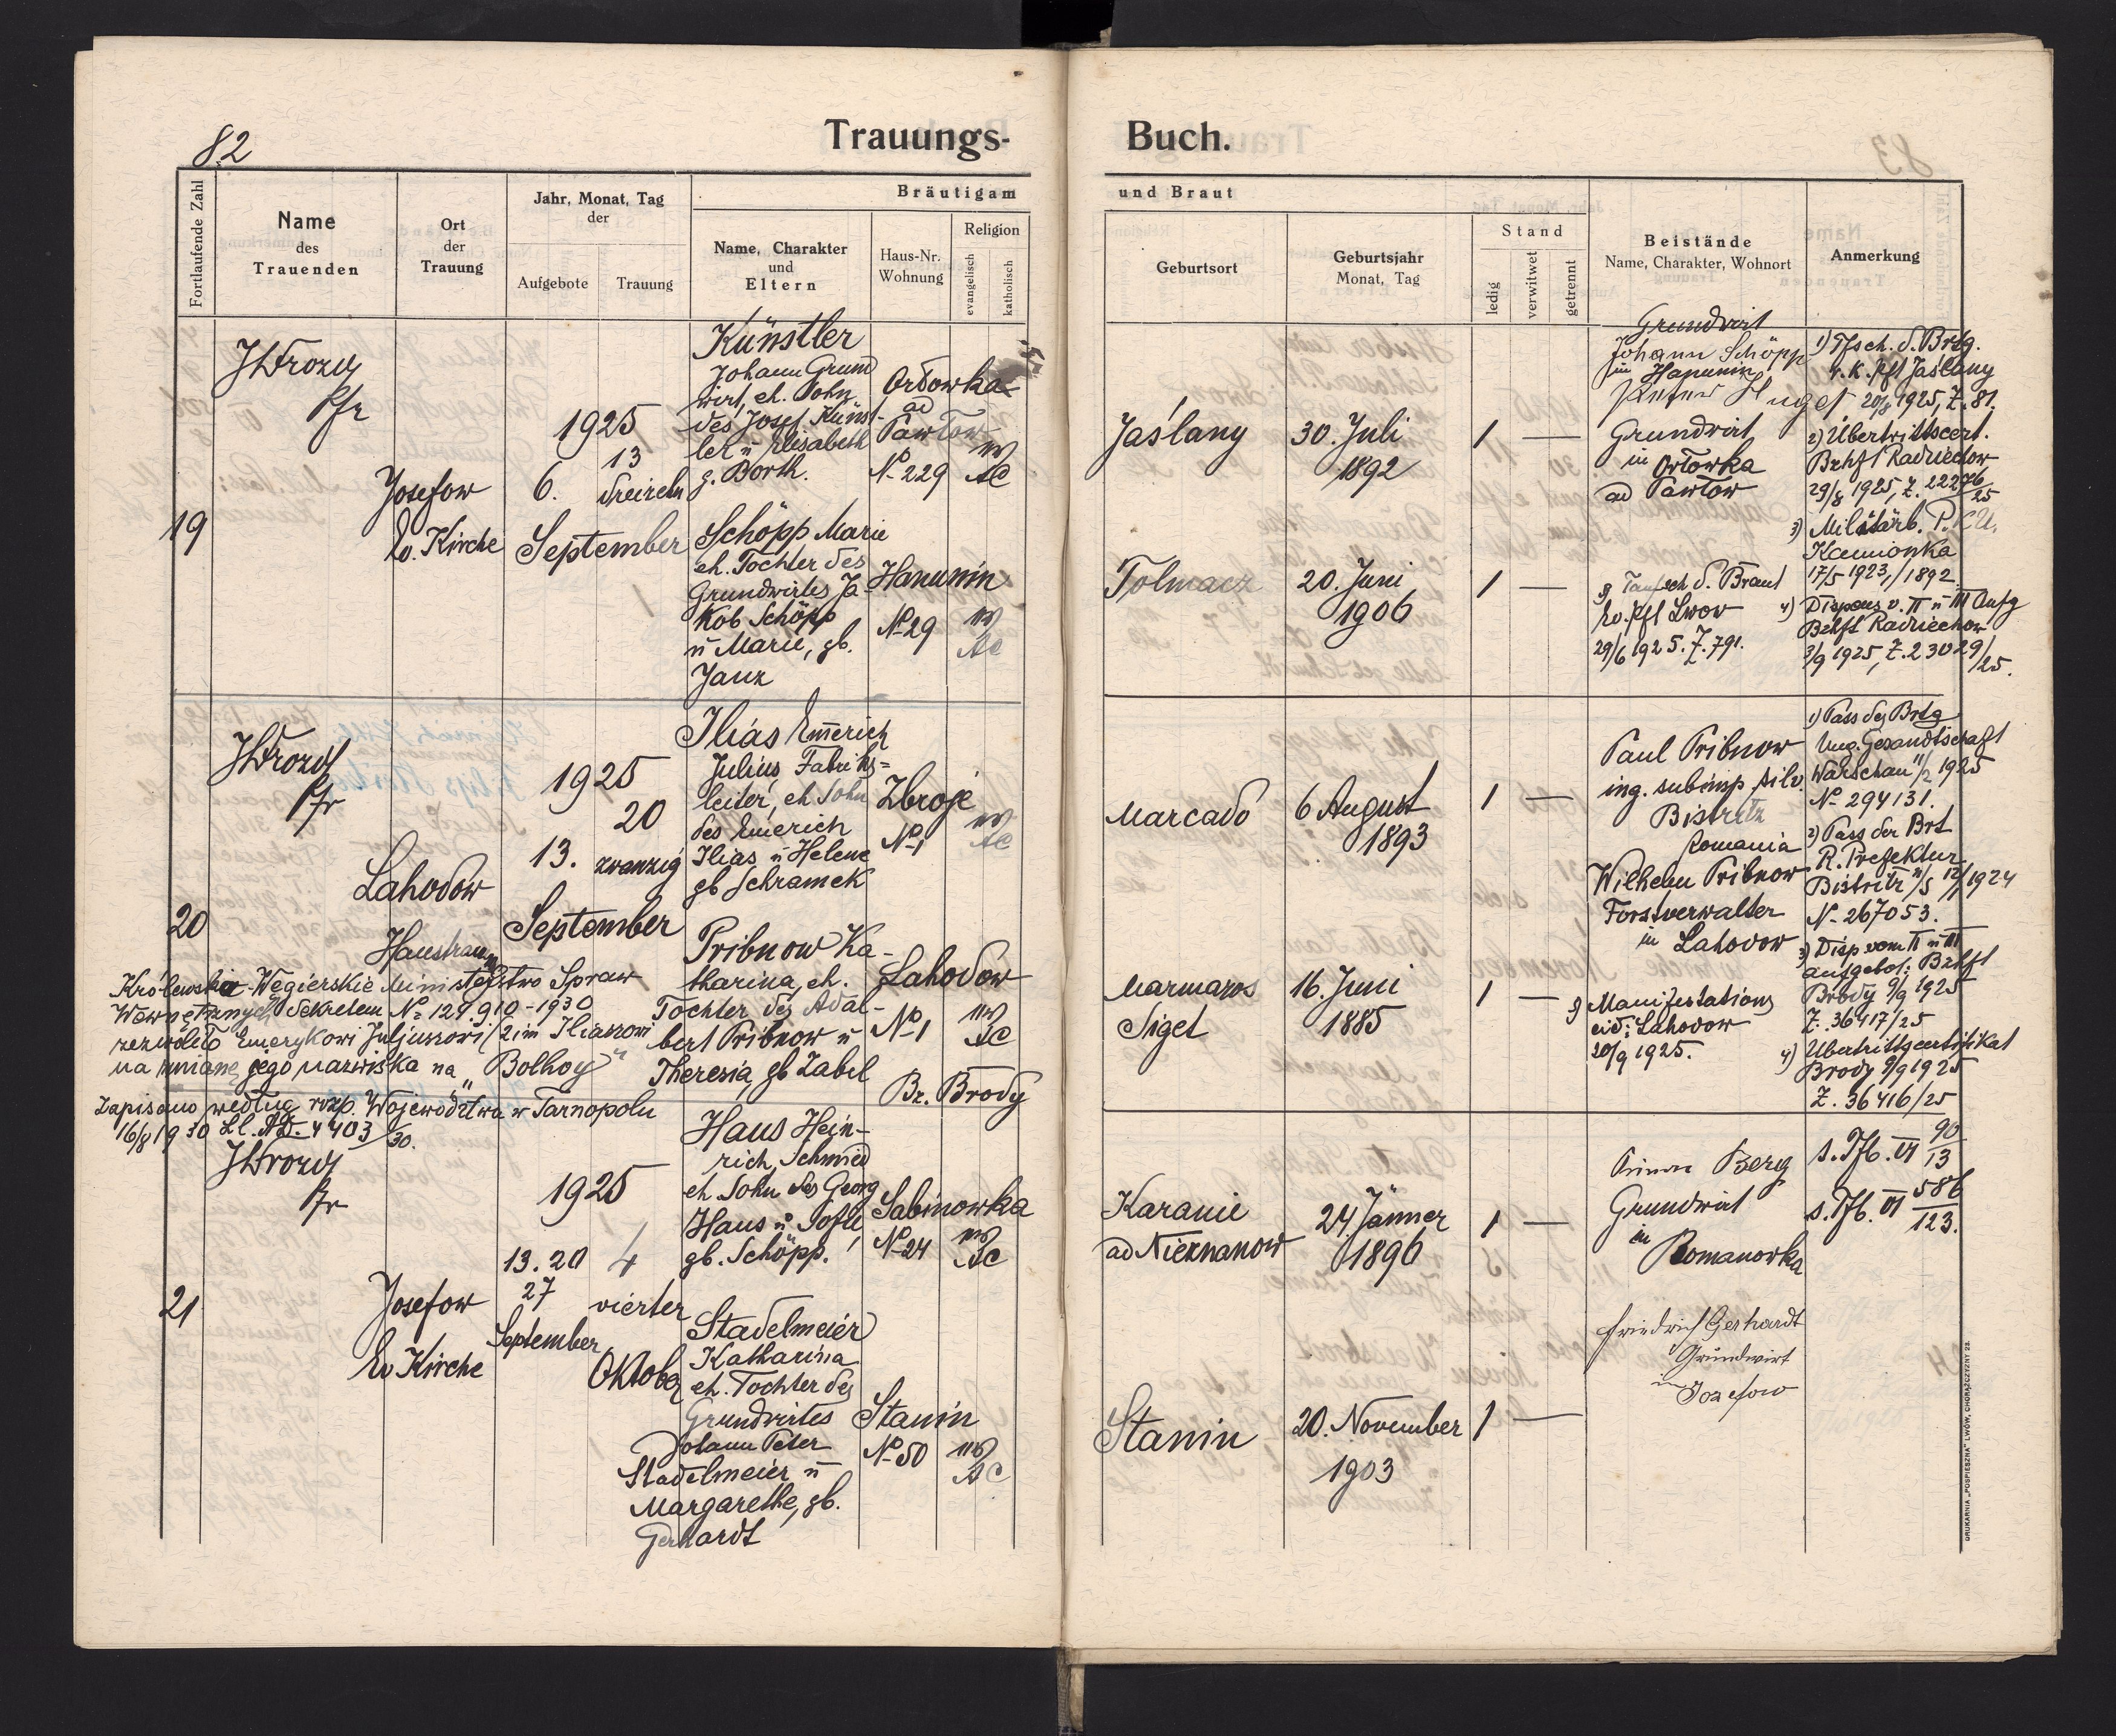 82
Trauungs-
Buch.
Fortlaufende Zahl
Name
des
Trauenden
Ort
der
Trauung
Jahr, Monat, Tag
der
Aufgebote
Trauung
Bräutigam
Name, Charakter
und
Eltern
Haus-Nr.
Wohnung
Religion
evangelisch
katholisch
und Braut
Geburtsort
Geburtsjahr
Monat, Tag
Stand
ledig
verwitwet
getrennt
Beistände
Name, Charakter, Wohnort
Anmerkung
19
JDrozd
Pfr
Josefow
Ev. Kirche
1925
6.
13
dreizehn
September
Künstler
Johann Grund
wirt, eh. Sohn
des Josef Künst-
ler u Elisabeth
g. Borth.
Orłowka
ad
Pawłow
No 229
AC
Schöpp Marie
eh. Tochter des
Grundwirtes Ja-
kob Schöpp
u Marie, gb.
Janz
Hanunin
No 29
AC
Jaślany
30. Juli
1892
1 —
Tolmacz
20. Juni
1906
1 —
Grundwirt
Johann Schöpp
in Hanunin
Grundwirt
in Orłowka
ad Pawłow
Taufsch d. Braut
Ev. Pfl Lwow
29/6 1925. Z. 791.
1) Tfsch. d. Brtg.
r. k. Pfl Jaślany
20/8 1925, Z. 81.
2) Übertrittscert.
Bzhft Radziechow
29/8 1925, Z. 22276/25
3) Militärb. P.K.U.
Kamionka
17/5 1923, / 1892.
4) Dispens v. II u III Aufg
Bzhft Radziechow
3/9 1925, Z. 23029/25.
20
JDrozd
Pfr
Lahodow
Haustrauung
1925
13.
20
zwanzig
September
Iliás Emerich
Julius, Fabriks=
leiter, eh Sohn
des Emerich
Ilias u Helene
gb Schramek
Zbroje
No 1
AC
Pribnow Ka-
tharina, eh.
Tochter des Adal-
bert Pribnow u
Theresia, gb Zabel
Lahodow
No 1
AC
Bz. Brody
Królewsko-Węgierskie Ministerstwo Spraw
Wewnętrznych dekretem No 129.910-1930
zezwoliło Emerykowi Juljuszowi (2 im Iliaszowi
na zmianę jego nazwiska na „Bolhoy"
Zapisano według rozp. Województwa w Tarnopolu
16/8 1930 Ll. AD. 4403/30.
Marcadó
6 August
1893
1 —
Marmaros
Siget
16. Juni
1885
1 —
Paul Pribnow
ing. subinsp. silv.
Bistritz
Romania
Wilhelm Pribnow
Forstverwalter
in Lahodow
Manifestations
eid: Lahodow
20/9 1925.
1) Pass des Brtg
Ung. Gesandtschaft
Warschau 11/2 1925
No 294131.
2) Pass der Brt
R. Prefektur
Bistritz
No 267053.
3) Disp vom II u III
Aufgebot: Bzhft
Brody 9/9 1925
Z. 36417/25
4) Übertrittscertifikat
Brody 9/9 1925
Z. 36416/25
21
JDrozd
Pfr
Josefow
Ev Kirche
1925
13. 20
27
September
4
vierter
Oktober
Haus Hein-
rich, Schmied
eh Sohn des Georg
Haus u Sofie
gb. Schöpp.
Sabinowka
No 24
AC
Stadelmeier
Katharina
eh. Tochter des
Grundwirtes
Johann Peter
Stadelmeier u
Margarethe, gb.
Gerhardt
Stanin
No 50
AC
Karanie
ad Nieznanow
24 Jänner
1896
1 —
Stanin
20. November
1903
1 —
Berg
Grundwirt
in
Romanowka
Friedrich Gerhardt
Grundwirt
in Jozefow
s. Tfb. VI 90/13
s. Tfb. VI 586/123.
DRUKARNIA „POSPIESZNA" LWÓW, CHORĄŻCZYZNY 23.